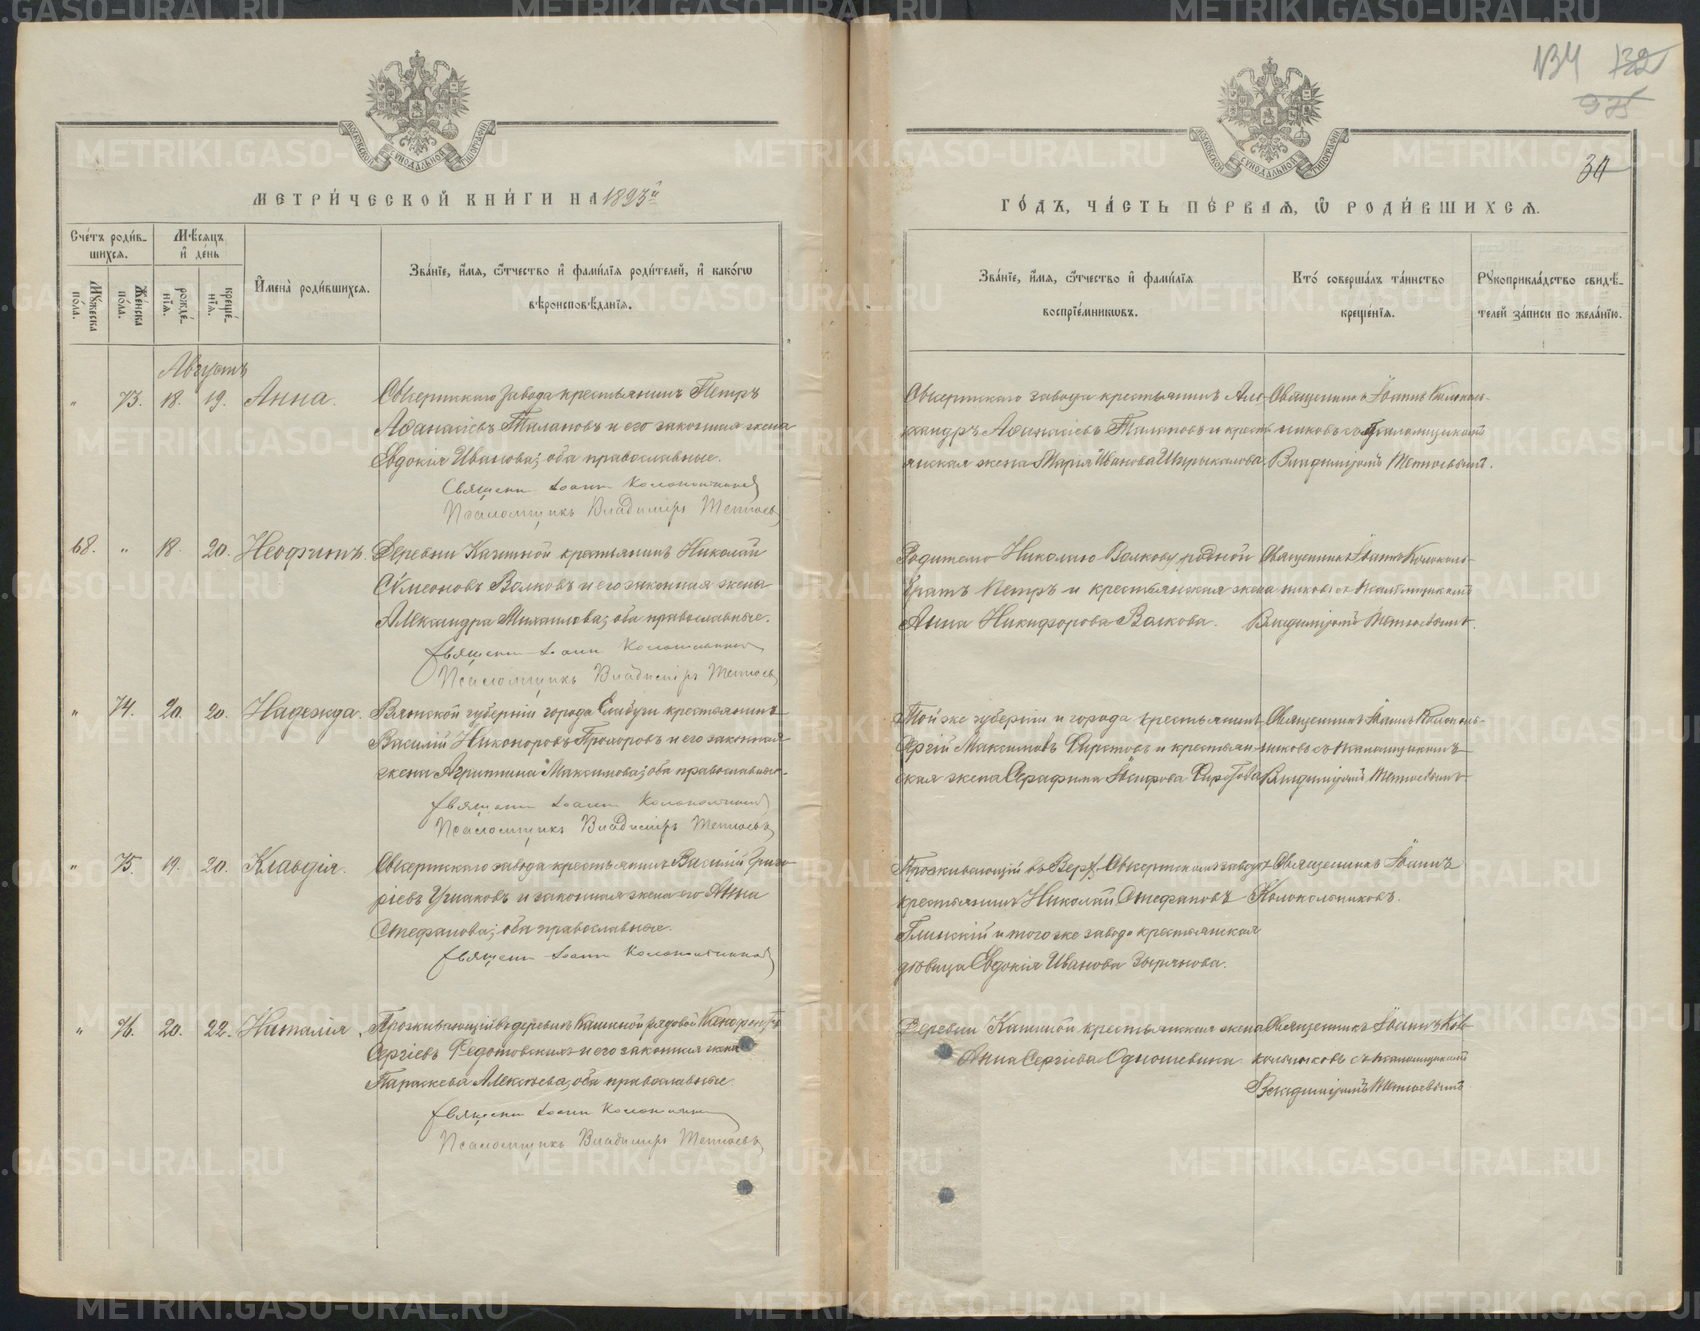 134 132
975
34
МОСКОВСКОЙ СУНОДАЛЬНОЙ ТИПОГРАФІИ
МОСКОВСКОЙ СУНОДАЛЬНОЙ ТИПОГРАФІИ
МЕТРИ́ЧЕСКОЙ КНИ́ГИ НА 1893й
ГО́ДЪ, ЧА́СТЬ ПЕ́РВАЯ, Ѿ РОДИ́ВШИХСЯ.
Сче́тъ роди́в-
шихся.
Мѣсяцъ
и де́нь
Мꙋжеска по́ла.
Женска по́ла.
рожде́нїя.
креще́нїя.
Имена̀ роди́вшихся.
Зва́нїе, и́мя, ѻ҆́тчество и҆ фами́лїя роди́телей, и҆ како́гѡ
вѣроисповѣ́данїя.
Зва́нїе, и́мя, ѻ҆́тчество и҆ фами́лїя
воспрїе́мникѡвъ.
Кто́ соверша́лъ та́инство
креще́нїя.
Рꙋкоприкла́дство свидѣ́-
телей за́писи по жела́нїю.
Августъ
" 73. 18. 19. Анна. Сысертскаго завода крестьянинъ Петръ
Аѳанасіевъ Талановъ и его законная жена
Евдокія Иванова; оба православные.
Священн Іоаннъ Колокольниковъ
Псаломщикъ Владиміръ
Сысертскаго завода крестьянинъ Алек
сандръ Аѳанасіевъ Талановъ и кресть
янская жена Марія Иванова
Священникъ Іоаннъ Колоколь-
никовъ съ псаломщикомъ
Владиміромъ
68. " 18. 20. Неофитъ. Деревни Кашиной крестьянинъ Николай
Сѵмеоновъ Волковъ и его законная жена
Александра Михаилова; оба православные.
Священн Іоаннъ Колокольниковъ
Псаломщикъ Владиміръ
Родителю Николаю Волкову родной
братъ Петръ и крестьянская жена
Анна Никифорова Волкова.
Священникъ Іоаннъ Колоколь-
никовъ съ псаломщикомъ
Владиміромъ
" 74. 20. 20. Надежда. Вятской губерніи города Елабуги крестьянинъ
Василій Никоноровъ Прохоровъ и его законная
жена Агриппина Максимова; оба православные.
Священн Іоаннъ Колокольниковъ
Псаломщикъ Владиміръ
Той же губерніи и города крестьянинъ
Сергій Максимовъ и крестьян-
ская жена Серафима Іосифова
Священникъ Іоаннъ Колоколь-
никовъ съ псаломщикомъ
Владиміромъ
" 75. 19. 20. Клавдія. Сысертскаго завода крестьянинъ Василій Григо-
ріевъ и законная жена его Анна
Стефанова; оба православные.
Священн Іоаннъ Колокольниковъ
Проживающій въ Верх. Сысертскомъ заводѣ
крестьянинъ Николай Стефановъ
Глинскій и того же завода крестьянская
дѣвица Евдокія Иванова Зырянова.
Священникъ Іоаннъ
Колокольниковъ.
" 76. 20. 22. Наталія. Проживающій въ деревнѣ Кашиной рядовой Никаноръ
Сергіевъ Федотовскихъ и его законная жена
Параскева Алексѣева; оба православные.
Священн Іоаннъ Колокольниковъ
Псаломщикъ Владиміръ
Деревни Кашиной крестьянская жена
Анна Сергіева
Священникъ Іоаннъ Коло-
кольниковъ съ псаломщикомъ
Владиміромъ
METRIKI.GASO-URAL.RU